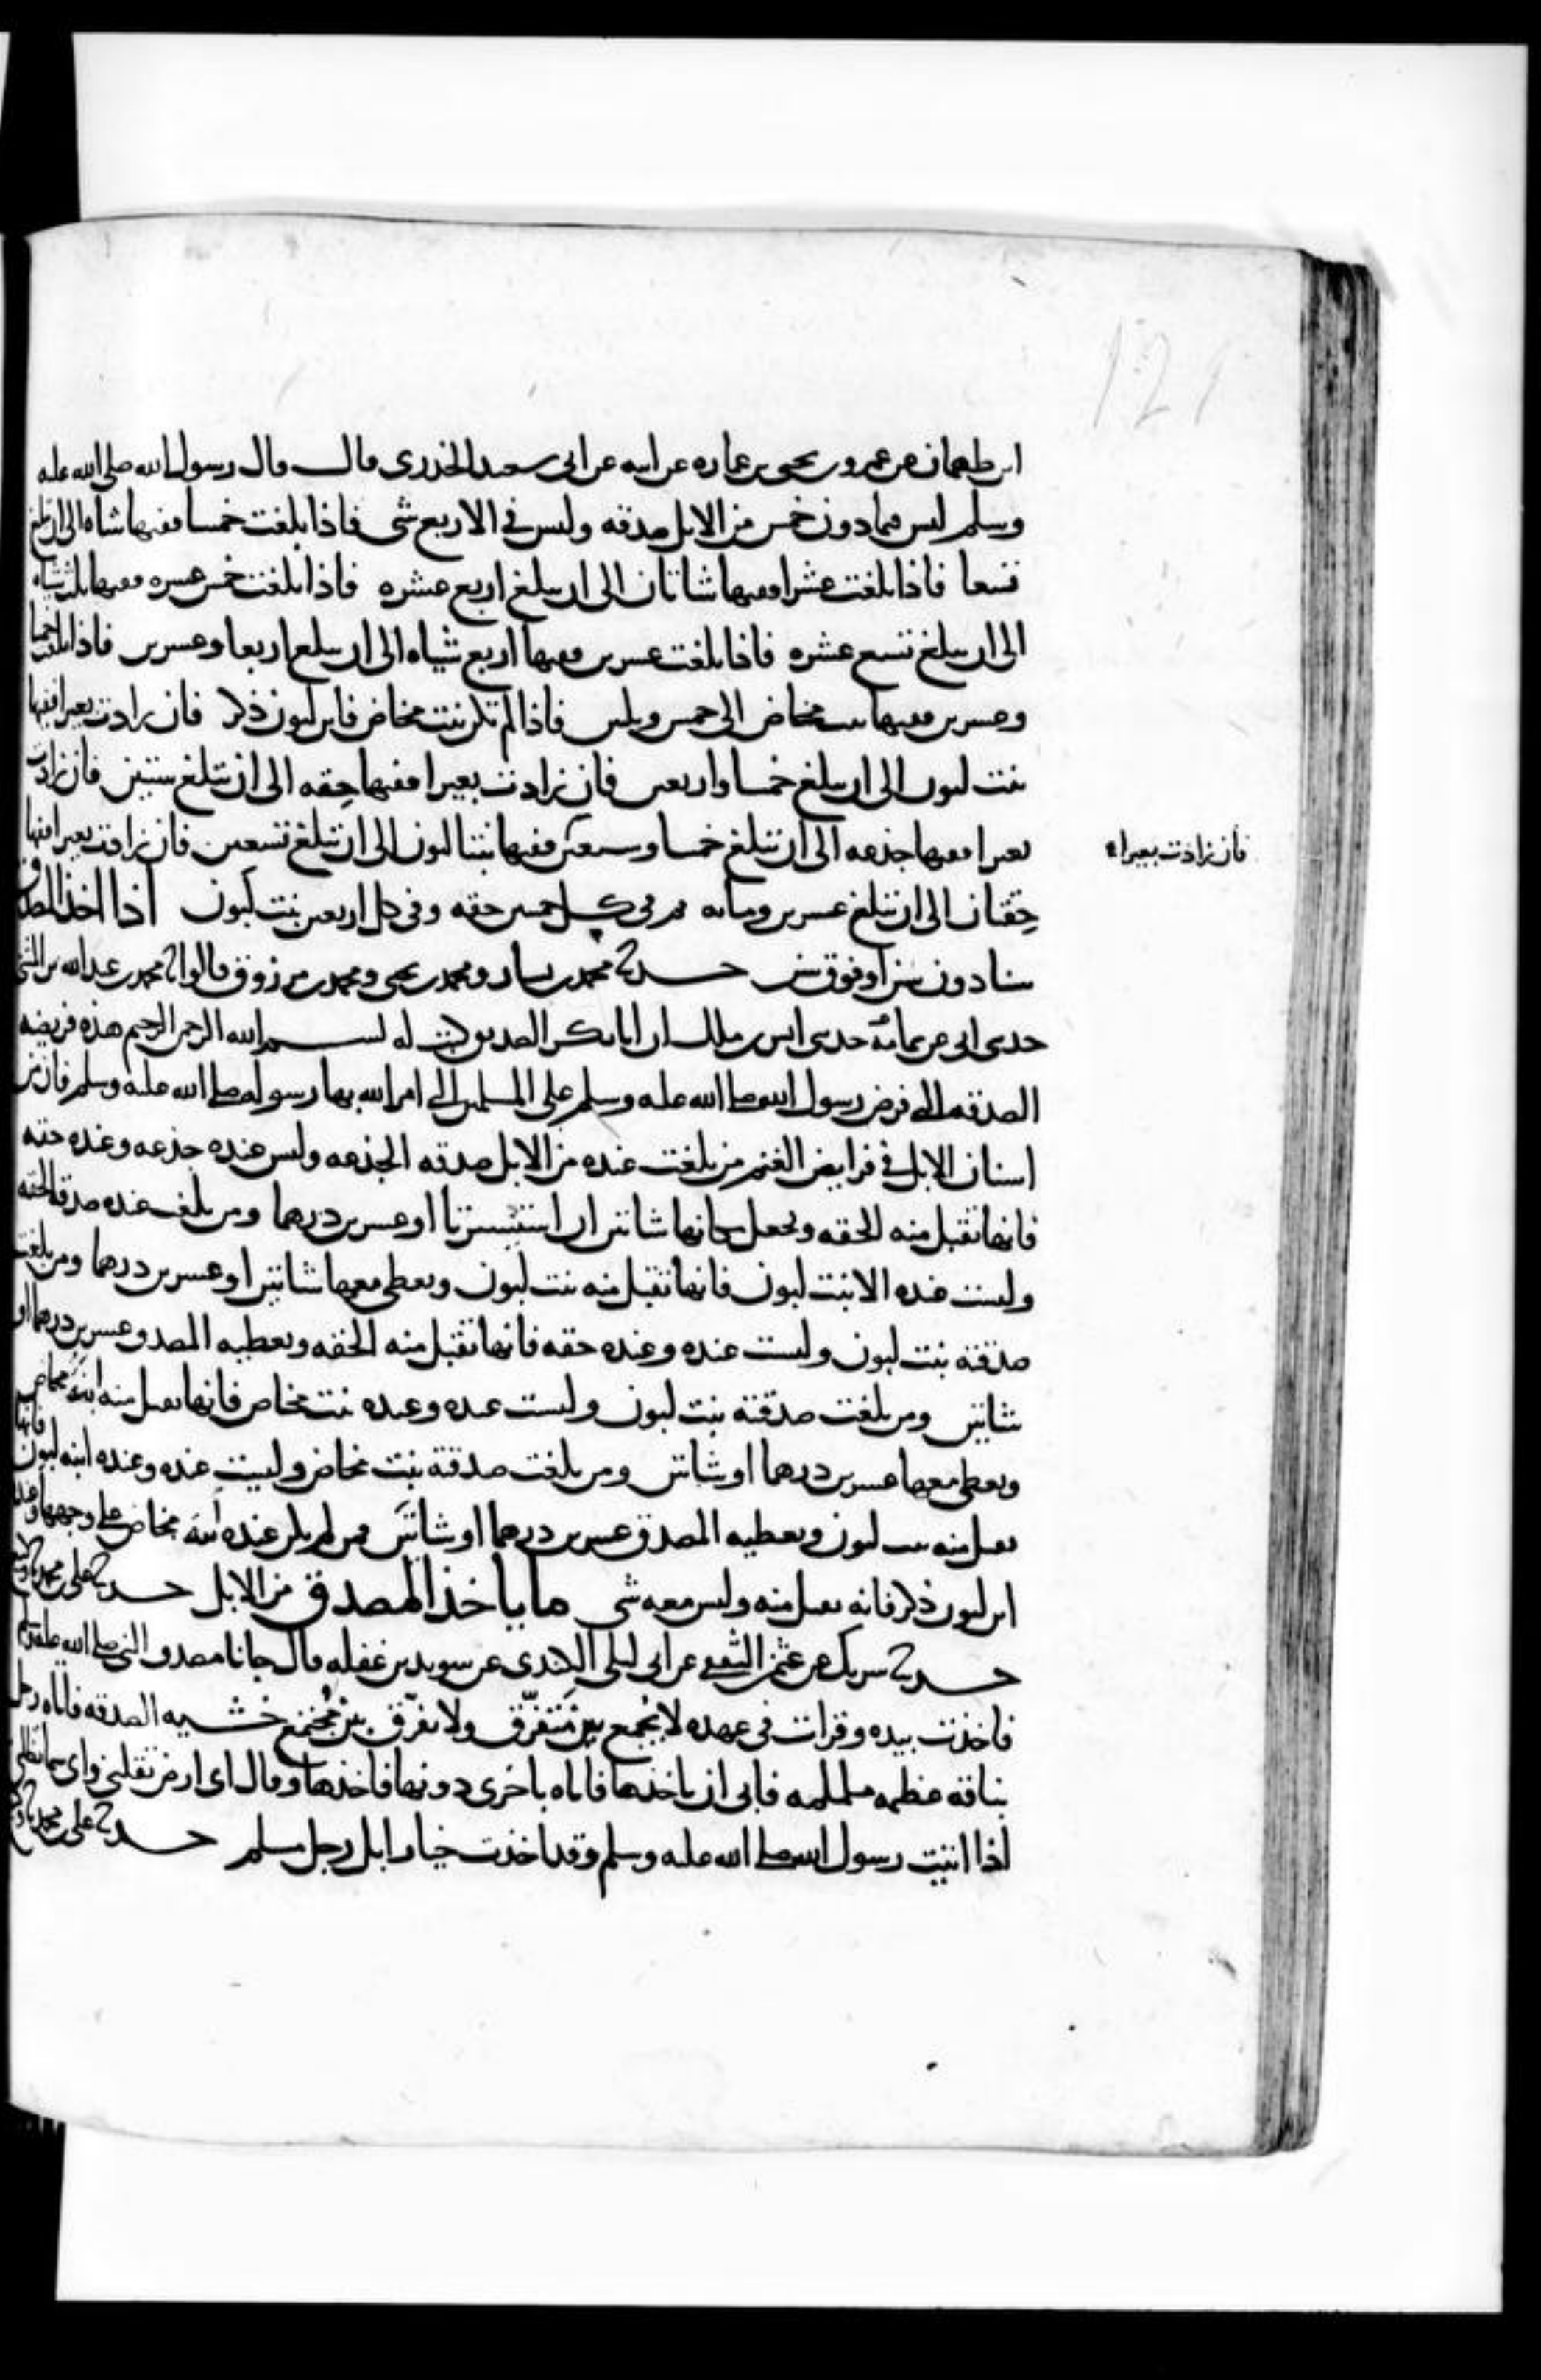 ابن طهمان عن عمرو بن يحيى بن عماره عن ابيه عن ابي سعيد الخدري قال قال رسول الله صلى الله عليه
وسلم ليس فيما دون خمس من الابل صدقه وليس في الاربع شي فاذا بلغت خمسا ففيها شاه الى ان تبلغ
تسعا فاذا بلغت عشرا ففيها شاتان الى ان تبلغ اربع عشره فاذا بلغت خمس عشره ففيها ثلث شياه
الى ان تبلغ تسع عشره فاذا بلغت عشرين ففيها اربع شياه الى ان تبلغ اربعا وعشرين فاذا بلغت خمسا
وعشرين ففيها بنت مخاض الى خمس وثلثين فاذا لم تكن بنت مخاض فابن لبون ذكر فان زادت بعيرا ففيها
بنت لبون الى ان تبلغ خمسا واربعين فان زادت بعيرا ففيها حقه الى ان تبلغ ستين فان زادت
بعيرا ففيها جذعه الى ان تبلغ خمسا وسبعين ففيها بنتا لبون الى ان تبلغ تسعين فان زادت بعيرا ففيها
فان زادت بعيرا
حقتان الى ان تبلغ عشرين ومائه ثم في كل خمسين حقه وفي كل اربعين بنت لبون اذا اخذ المصدق
سنا دون سن او فوق سن حدثنا محمد بن بشار ومحمد بن يحيى ومحمد بن مرزوق قالوا ثنا محمد بن عبد الله بن المثنى
حدثني ابي عن ثمامة حدثني انس بن ملك ان ابا بكر الصديق كتب له بسم الله الرحمن الرحيم هذه فريضه
الصدقه التي فرض رسول الله صلى الله عليه وسلم على المسلمين التي امر الله بها رسوله صلى الله عليه وسلم فان من
اسنان الابل في فرايض الغنم من بلغت عنده من الابل صدقه الجذعه وليس عنده جذعه وعنده حقه
فانها تقبل منه الحقه ويجعل مكانها شاتين ان استيسرتا او عشرين درهما ومن بلغت عنده صدقه الحقه
وليست عنده الا بنت لبون فانها تقبل منه بنت لبون ويعطي معها شاتين او عشرين درهما ومن بلغت
صدقته بنت لبون وليست عنده وعنده حقه فانها تقبل منه الحقه ويعطيه المصدق عشرين درهما او
شاتين ومن بلغت صدقته بنت لبون وليست عنده وعنده بنت مخاض فانها تقبل منه ابنة مخاض
ويعطي معها عشرين درهما او شاتين ومن بلغت صدقته بنت مخاض وليست عنده وعنده ابنه لبون فانها
تقبل منه بنت لبون ويعطيه المصدق عشرين درهما او شاتين فمن لم يكن عنده ابنة مخاض على وجهها وعنده
ابن لبون ذكر فانه يقبل منه وليس معه شي ما ياخذ المصدق من الابل حدثنا علي بن محمد ثنا وكيع
حدثنا شريك عن عثمن الثقفي عن ابي ليلى الكندي عن سويد بن غفله قال جانا مصدق النبي صلى الله عليه وسلم
فاخذت بيده وقرات في عهده لا يجمع بين متفرق ولا يفرق بين مجتمع خشيه الصدقه فاتاه رجل
بناقه عظيمه ململمه فابى ان ياخذها فاتاه باخرى دونها فاخذها وقال اي ارض تقلني واي سما تظلني
اذا اتيت رسول الله صلى الله عليه وسلم وقد اخذت خيار ابل رجل مسلم حدثنا علي بن محمد ثنا وكيع